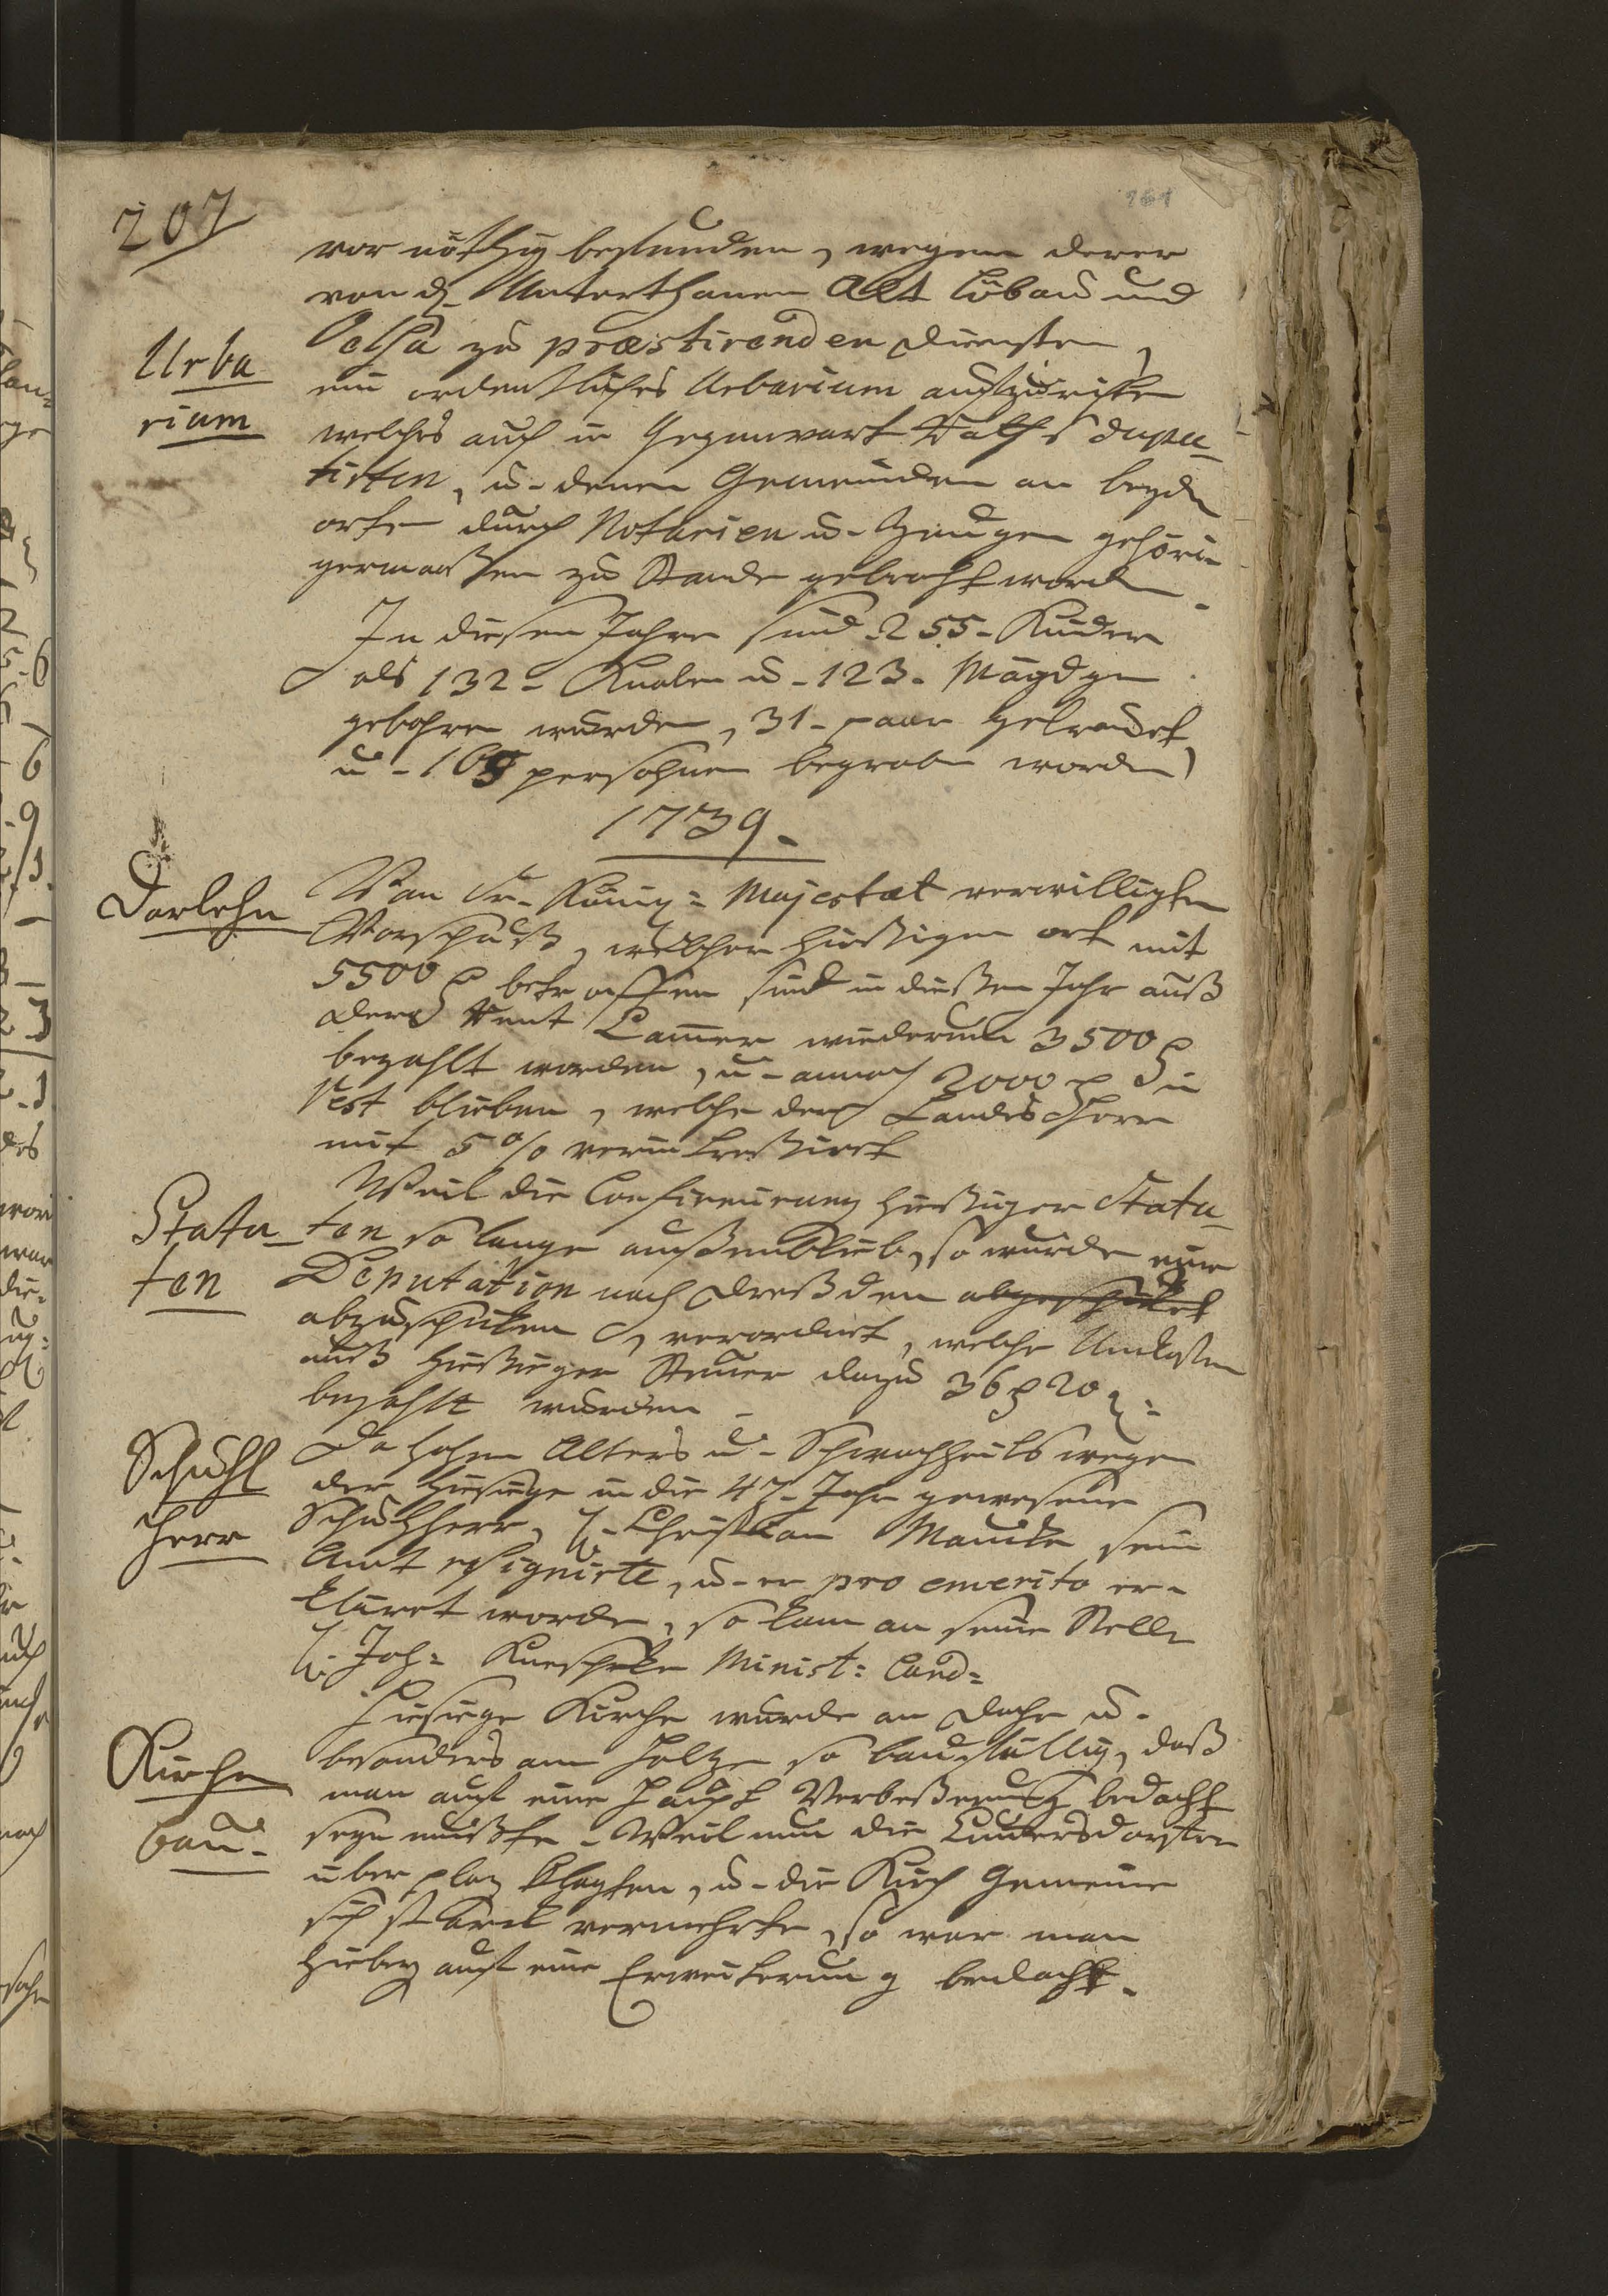 207
vor nöthig befunden, wegen derer
von d. Unterthanen Alt Löbau und
Oelsa zu præstirenden Diensten,
Urba
rium
ein ordentliches Urbarium aufzurichten
welches auch in Gegenwart Raths Depu-
tirten, u. denen Gemeinden an beyden
orten durch Notarien u. Zeugen gehöri-
germaaßen zu Stande gebracht worden.
In diesen Jahre sind 255. Kinder
als 132. Knaben u. 123. Mägdgen
gebohren worden, 31. paar getrauet,
u. persohnen begraben worden
1739.
Darlehn
Von Sr. Königl: Majestæt verwilligten
Vorschuß, welcher hießigen ort mit
5500 betroffen sind in dießen Jahr auß
der Rent Camer wiederum 3500
bezahlt worden, u. annoch 2000 in
Rest blieben, welche der Landes Herr
mit 5 % verinteressiret
Weil die Confirmirung hießiger Statu-
Statu-
ten
ten so lange außenblieb, so wurde eine
Deputation nach Dreßden abgeschicket
abzuschicken verordnet, welche Unkosten
auß hießiger Steuer dazu 36 20
bezahlt wurden.
Schuhl
Herr
Da hohen Alters u. Schwachheits wegen
der hiesige in die 47. Jahr gewesene
Schulherr, H. Christian Mancke sein
Amt resignirte, u. er pro emerito er-
kläret worden, so kam an seine Stelle
H. Joh: Minist: Cand:
Kirchen
bau.
Hiesige Kirche wurde am Dache u.
besonders am Holtze so baufällig, daß
man auf eine Haupt Verbeßerung bedacht
seyn mußte. Weil nun die
über plaz klagten, u. die Kirch Gemeine
sich starck vermehrte, so war man
hiebey auf eine Erweiterung bedacht.